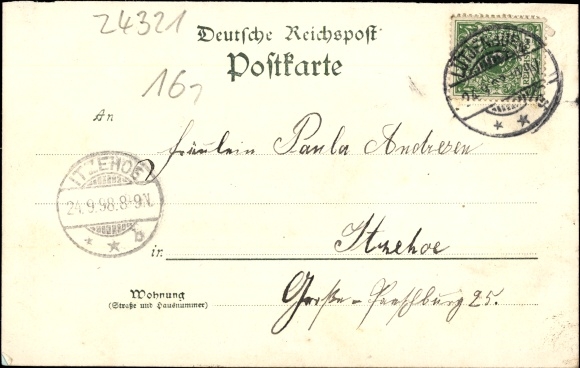 24321
Deutsche Reichspost
Postkarte
16,
An
Fräulein Paula Andresen
ITZEHOE
24.9.98.8-9N.
* * b
in Itzehoe
Wohnung
(Straße und Hausnummer)
Große 25.